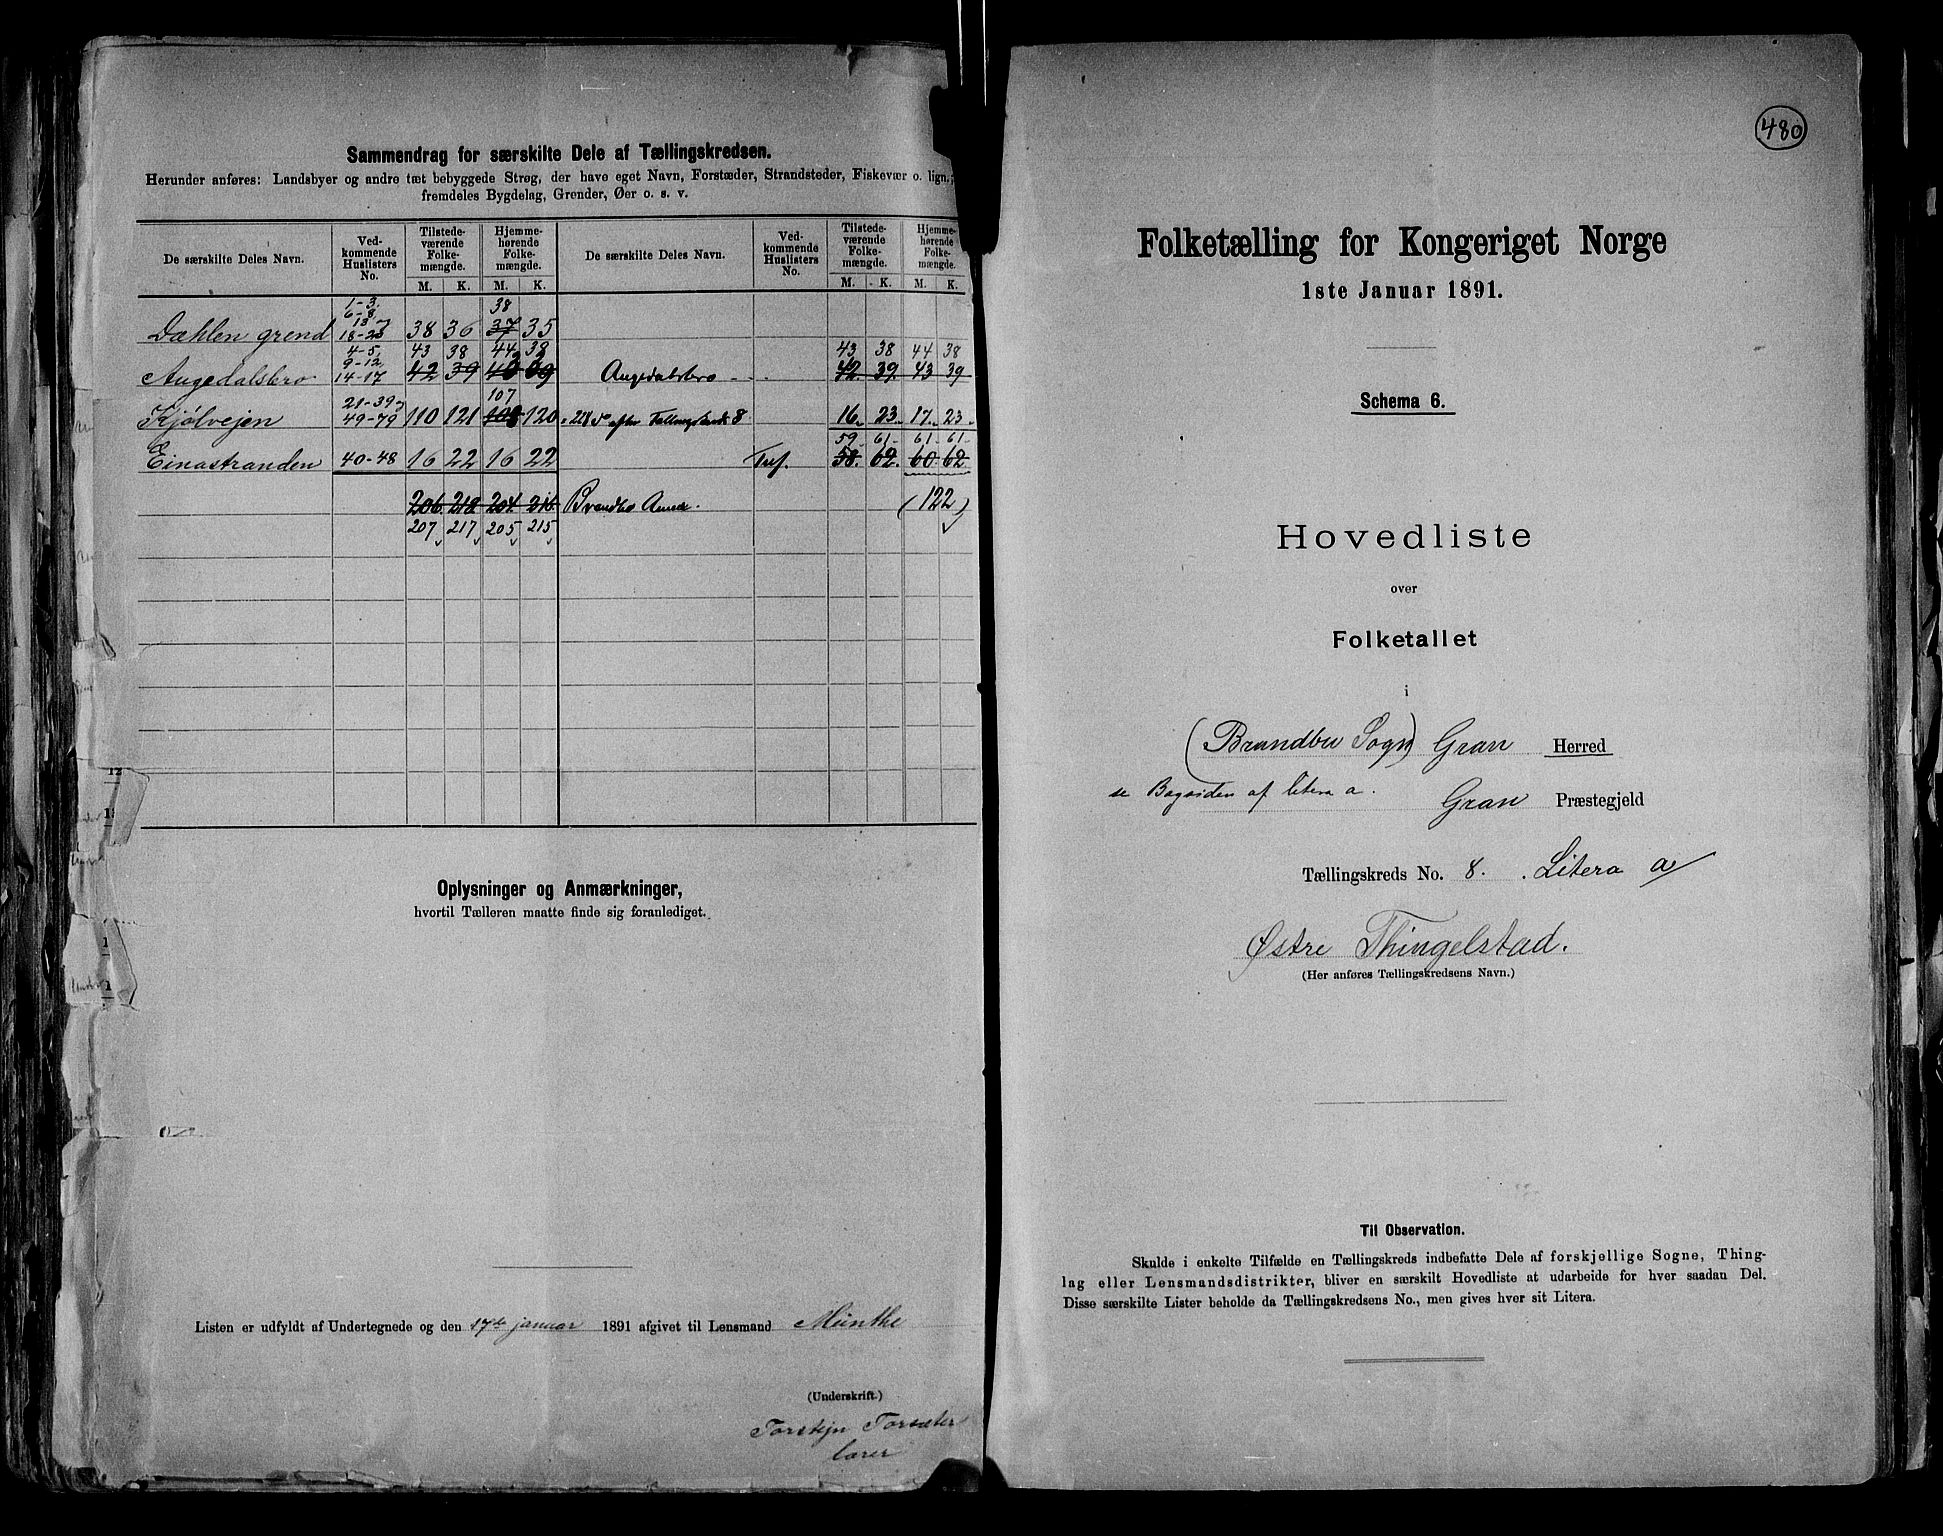 Sammendrag for særskilte Dele af Tællingskredsen.
Herunder anføres: Landsbyer og andre tæt bebyggede Strøg, der have eget Navn, Forstæder, Strandsteder, Fiskevær o. lign.;
fremdeles Bygdelag, Grender, Øer o. s. v.
De særskilte Deles Navn. Ved-kommende Huslisters No. Tilstede-værende Folke-mængde. Hjemme-hørende Folke-mængde. De særskilte Deles Navn. Ved-kommende Huslisters No. Tilstede-værende Folke-mængde. Hjemme-hørende Folke-mængde.
M. K. M. K. M. K. M. K.
1-3 38
6-8
13
Dæhlen grend 18-23 38 36 37 35
4-5, 43 38 44 38 43 38 44 38
9-12
Augedalsbro 14-17 42 39 43 39 Augedalsbro 42. 39. 43 39
21-39 107
Kjølvejen 49-79 110 121 108 120 efter 8 16 23 17 23
59 61 61 61
Einastranden 40-48 16 22 16 22 58. 62. 60. 62.
206 218 204 216 Brandbu Annex. (122)
207 217 205 215
Oplysninger og Anmærkninger,
hvortil Tælleren maatte finde sig foranlediget.
Listen er udfyldt af Undertegnede og den 17de januar 1891 afgivet til Lensmand Münthe
(Underskrift.)
Torstejn Torsæter
lærer
480
Folketælling for Kongeriget Norge
1ste Januar 1891.
Schema 6.
Hovedliste
over
Folketallet
i
(Brandbu Sogn) Gran Herred
se Bagsiden af litera a. Gran Præstegjeld
Tællingskreds No. 8. Litera a
Østre Thingelstad.
(Her anføres Tællingskredsens Navn.)
Til Observation.
Skulde i enkelte Tilfælde en Tællingskreds indbefatte Dele af forskjellige Sogne, Thing-
lag eller Lensmandsdistrikter, bliver en særskilt Hovedliste at udarbeide for hver saadan Del.
Disse særskilte Lister beholde da Tællingskredsens No., men gives hver sit Litera.